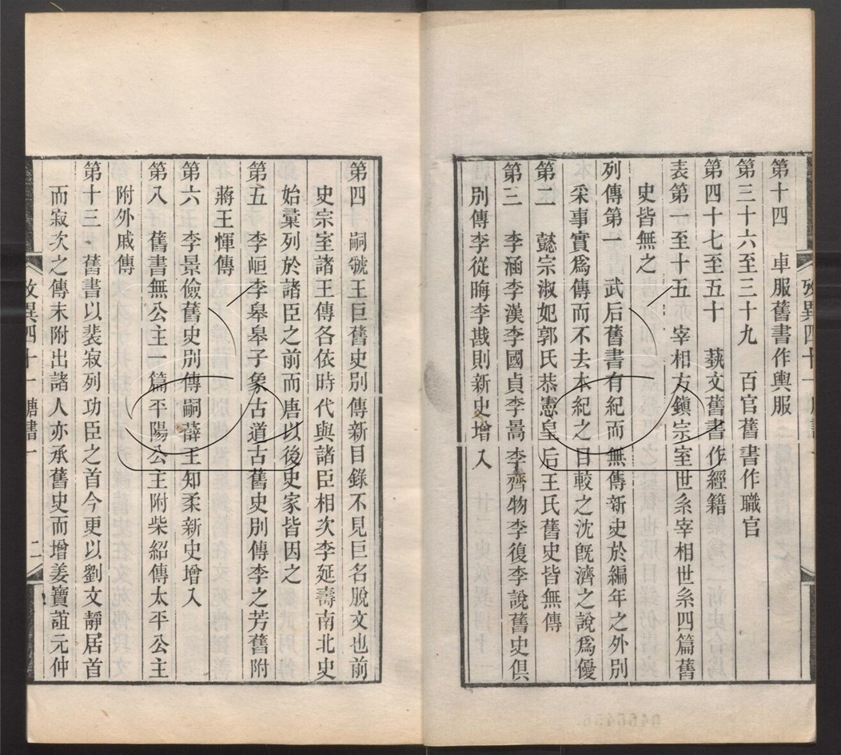 第十四　車服舊書作輿服
第三十六至三十九　百官舊書作職官
第四十七至五十　蓺文舊書作經籍
表第一至十五　宰相方鎭宗室世系宰相世系四篇舊
史皆無之
列傳第一　武后舊書有紀而無傳新史於編年之外別
采事實爲傳而不去本紀之目較之沈旣濟之說爲優
第二　懿宗淑妃郭氏恭憲皇后王氏舊史皆無傳
第三　李涵李漢李國貞李暠李齊物李復李說舊史俱
別傳李從晦李戡則新史增入
第四　嗣虢王巨舊史別傳新目錄不見巨名脫文也前
史宗室諸王傳各依時代與諸臣相次李延壽南北史
始彙列於諸臣之前而唐以後史家皆因之
第五　李峘李皋皋子象古道古舊史別傳李之芳舊附
蔣王惲傳
第六　李景儉舊史別傳嗣薛王知柔新史增入
第八　舊書無公主一篇平陽公主附柴紹傳太平公主
附外戚傳
第十三　舊書以裴寂列功臣之首今更以劉文靜居首
而寂次之傳末附出諸人亦承舊史而增姜寶誼元仲
攷異四十一唐書一　二